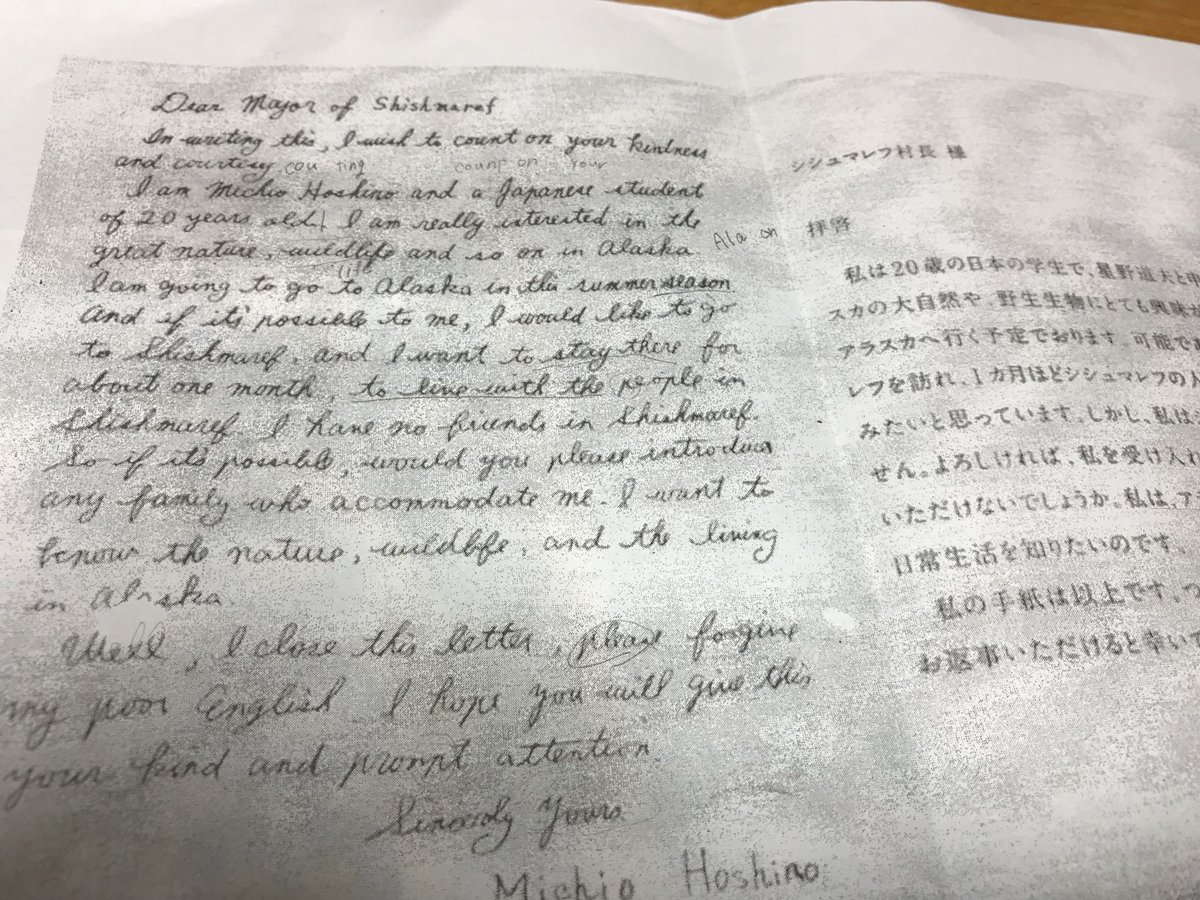 Dear Mayor of Shishmaref
In writing this, I wish to count on your kindness
and courtesy cou ting count on your
I am Michio Hoshino and a Japanese student
of 20 years old. I am really interested in the
great nature, wildlife and so on in Alaska
Ala on
life
I am going to go to Alaska in this summer season
And if it's possible to me, I would like to go
to Shishmaref. and I want to stay there for
about one month, to live with the people in
Shishmaref I have no friends in Shishmaref.
So if it's possible, would you please introduce
any family who accommodate me. I want to
know the nature, wildlife, and the living
in Alaska.
Well, I close this letter, please forgive
my poor English I hope you will give this
your kind and prompt attention.
Sincerely Yours
Michio Hoshino
シシュマレフ村長 様
拝啓
私は20歳の日本の学生で、星野道夫と申
スカの大自然や、野生生物にとても興味
アラスカへ行く予定でおります。可能であ
レフを訪れ、1カ月ほどシシュマレフの人
みたいと思っています。しかし、私は、
せん。よろしければ、私を受け入れ
いただけないでしょうか。私は、ア
日常生活を知りたいのです。
私の手紙は以上です。つ
お返事いただけると幸い